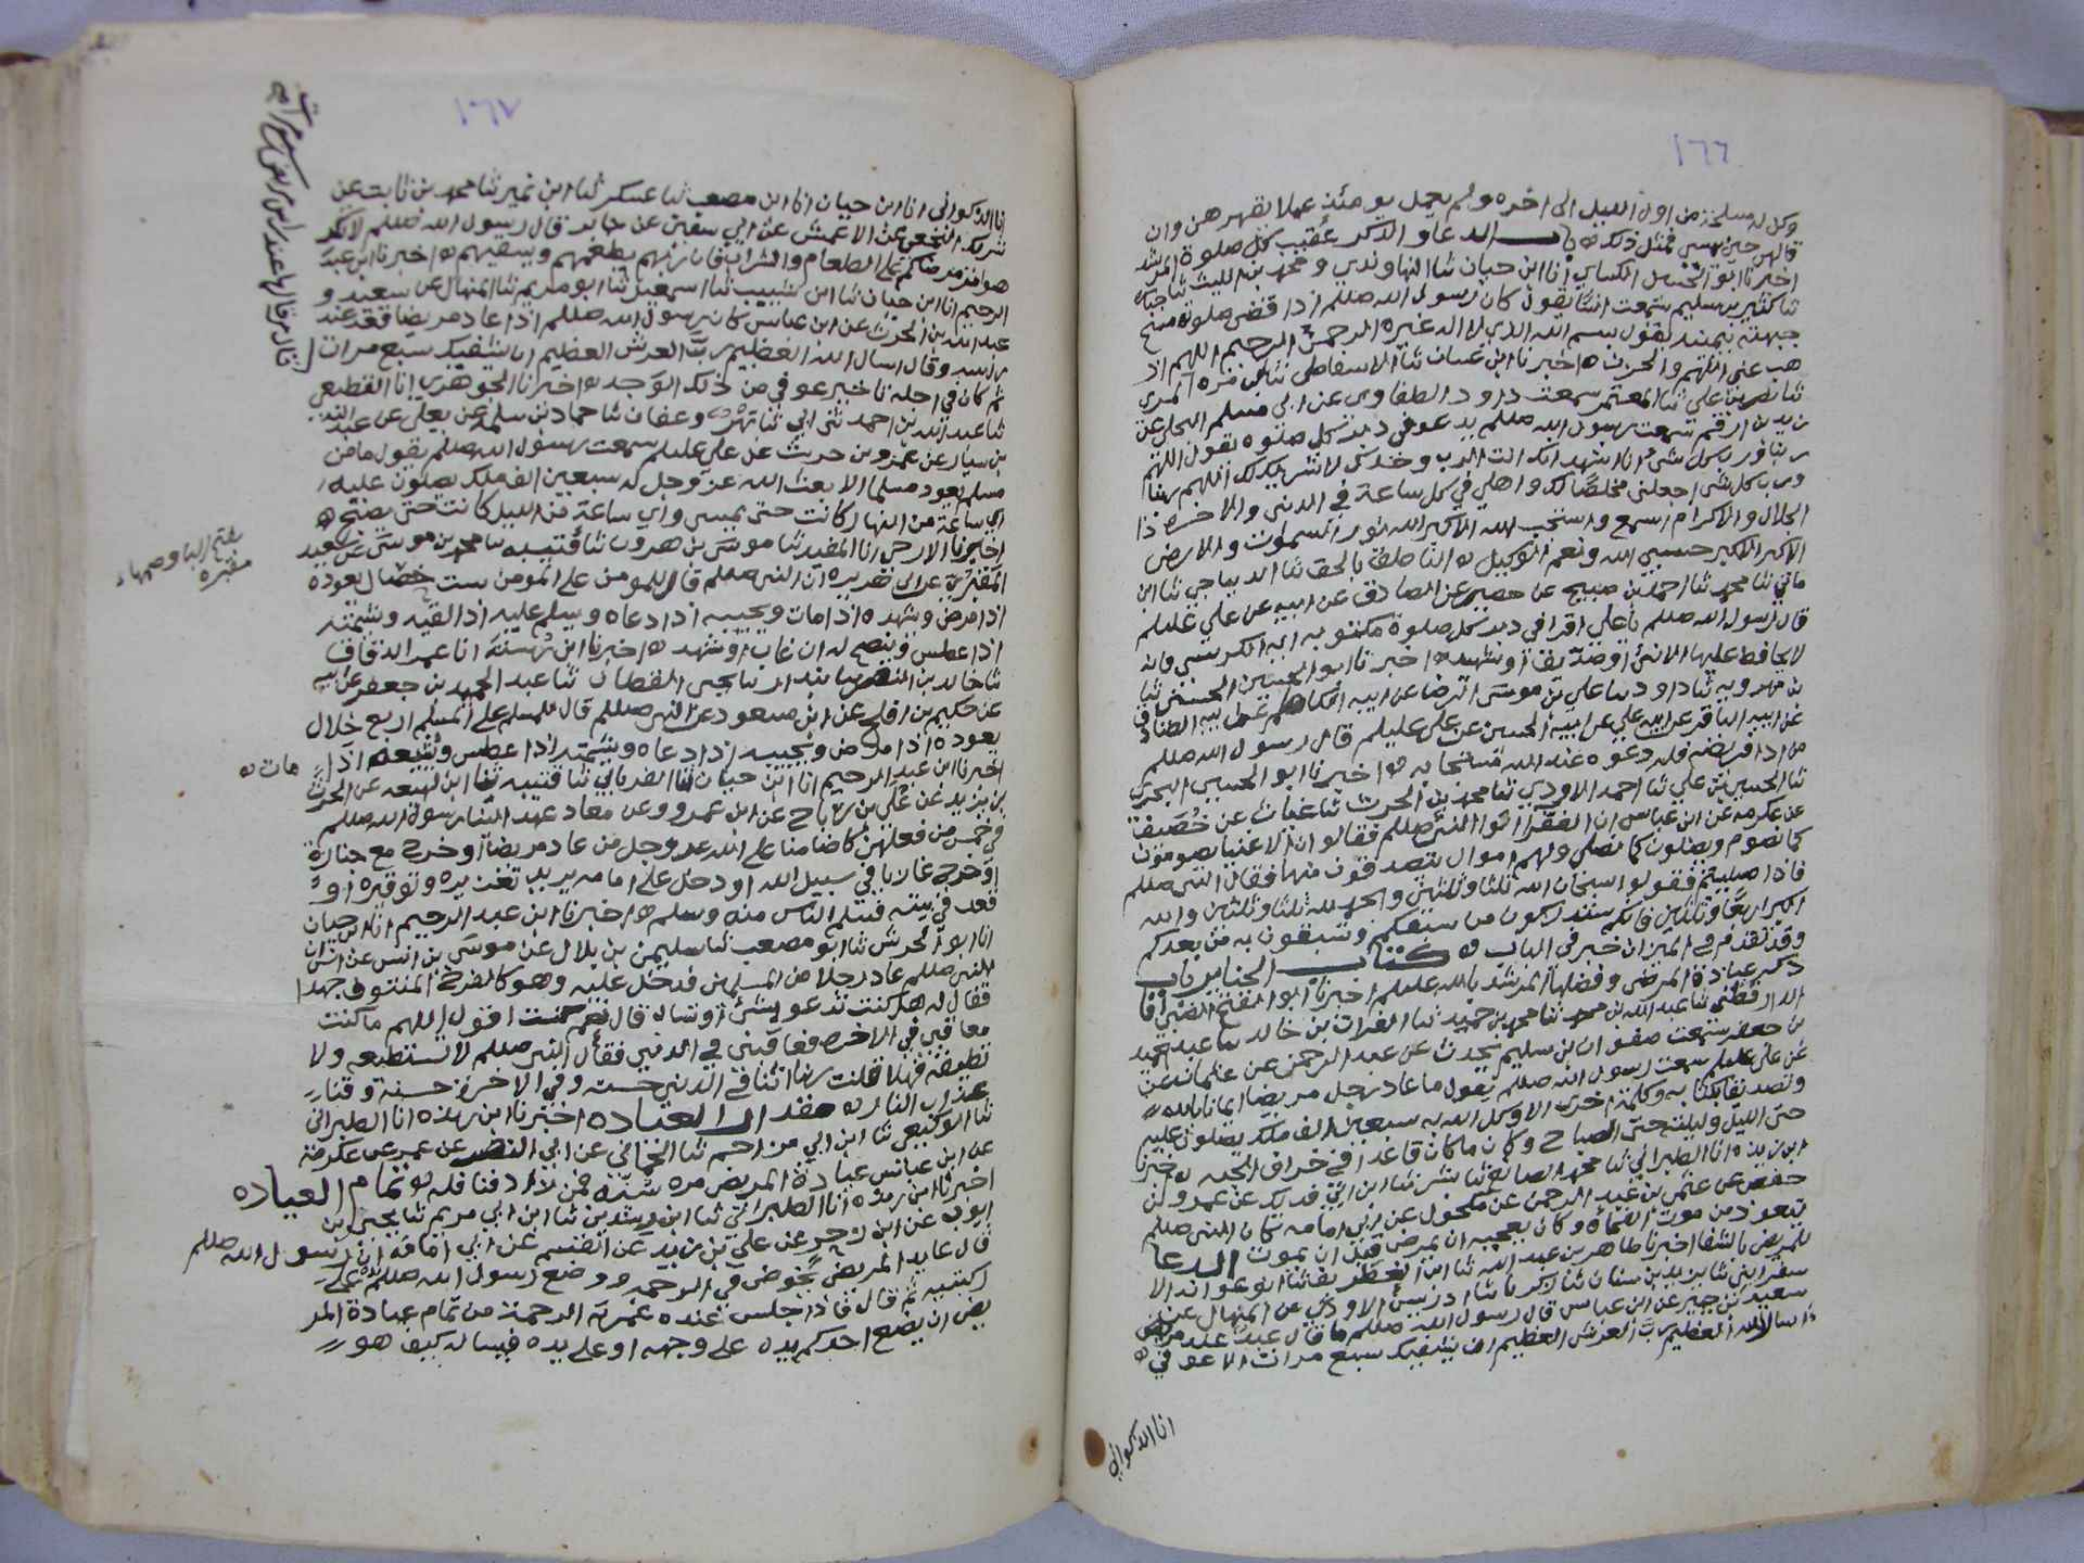 ١٦٦
وكل له مسلحة من اول الليل الى اخره ولم يعمل يومئذ عملا يقهرهن وان
قالهن حين يمسي فمثل ذلك ه باب الدعا والذكر عقيب كل صلوة المرشد
اخبرنا ابو الكساي انا ابن حيان ثنا النهاوندي و محمد بن الليث ثنا
ثنا كثير بن سليم سمعت انسا يقول كان رسول الله صللم اذا قضى صلوته مسح
جبهته بيمينه يقول بسم الله الذي لا اله غيره الرحمن الرحيم اللهم اذ
هب عني الهم والحزن ه اخبرنا ابن غسان ثنا الاسفاطي ثنا
ثنا نصر بن علي ثنا المعتمر سمعت داود الطفاوي عن ابي مسلم البجلي عن
زيد بن ارقم سمعت رسول الله صللم يدعو في دبر كل صلوة يقول اللهم
ربنا ورب كل شئ انا اشهد انك انت الرب وحدك لا شريك لك اللهم ربنا
ورب كل شئ اجعلني مخلصا لك واهلي في كل ساعة في الدنيا والاخرة ذا
الجلال والاكرام اسمع واستجب الله الاكبر الله نور السموات والارض
الاكبر الاكبر حسبي الله ونعم الوكيل ه الناطق بالحق ثنا الديباجي ثنا ابن
ماتي ثنا محمد ثنا احمد بن صبيح عن حصين عن الصادق عن ابيه عن علي عليلم
قال رسول الله صللم يا علي اقرا في دبر كل صلوة مكتوبه اية الكرسي فانه
لا يحافظ عليها الا نبي او صديق او شهيد ه اخبرنا ابو الحسين الحسني ثنا
بن مهرويه ثنا داود ثنا علي بن موسى الرضا عن ابيه الكاظم عن ابيه الصادق
عن ابيه الباقر عن ابيه علي عن ابيه الحسين عن علي عليلم قال رسول الله صللم
من ادا فريضة فله دعوة عند الله مستجابه ه اخبرنا ابو الحسين البحري
ثنا الحسين بن علي ثنا احمد الاودي ثنا محمد بن الحرث ثنا عتاب عن خصيف
عن عكرمه عن ابن عباس ان الفقرا اتوا النبي صللم فقالوا ان الاغنيا يصومون
كما نصوم ويصلون كما نصلي ولهم اموال يتصدقون منها فقال النبي صللم
فاذا صليتم فقولوا سبحان الله ثلثا وثلثين والحمد لله ثلثا وثلثين والله
اكبر اربعا وثلثين فانكم ستدركون من سبقكم وتسبقون به من بعدكم
وقد تقدم في الميزان خبر في الباب ه كتاب الجنايز باب
ذكر عيادة المرضى وفضلها المرشد بالله عليلم اخبرنا ابو الفتح الضبي انا
الدارقطني ثنا عبد الله بن محمد ثنا محمد بن حميد ثنا الفرات بن خالد ثنا عبد الحميد
بن جعفر سمعت صفوان بن سليم يحدث عن عبد الرحمن عن عثمان عن
عن علي عليلم سمعت رسول الله صللم يقول ما عاد رجل مريضا ايمانا بالله
وتصديقا بكتابه وكلمة اخرى الا وكل الله به سبعين الف ملك يصلون عليه
حتى الليل وليلته حتى الصباح وكان ما كان قاعدا في خراف الجنه ه اخبرنا
ابن ريذه انا الطبراني ثنا محمد الصائغ ثنا بشر ثنا ابن ابي فديك عن عمرو بن
حفص عن عثمن بن عبد الرحمن عن مكحول عن ابي امامه كان النبي صللم
يتعوذ من موت الفجأة وكان يعجبه ان يمرض قبل ان يموت الدعا
للمريض بالشفا اخبرنا طاهر بن عبد الله ثنا ابن الغطريف ثنا ابو عوانه الا
سفرايني ثنا يزيد بن سنان ثنا زكريا ثنا ادريس الاودي عن المنهال عن
سعيد بن جبير عن ابن عباس قال رسول الله صللم ما قال عبد عند مريض
اسال الله العظيم رب العرش العظيم ان يشفيك سبع مرات الا عوفي ه
انا الذكواني
١٦٧
انا الذكواني انا ابن حيان انا ابن مصعب ثنا عسكر ثنا ابن نمير ثنا محمد بن ثابت عن
شريك النخعي عن الاعمش عن ابي سفين عن جابر قال رسول الله صللم لا تكر
هوا مرضاكم على الطعام والشراب فان ربهم يطعمهم ويسقيهم ه اخبرنا ابن عبد
الرحيم انا ابن حيان ثنا ابن شبيب ثنا اسمعيل ثنا ابو مريم ثنا المنهال عن سعيد و
عبد الله بن الحرث عن ابن عباس كان رسول الله صللم اذا عاد مريضا قعد عند
راسه وقال اسال الله العظيم رب العرش العظيم ان يشفيك سبع مرات
ثم كان في اجله تاخير عوفي من ذلك الوجد ه اخبرنا الجوهري انا القطيعي
ثنا عبد الله بن احمد ثني ابي ثنا بهز وعفان ثنا حماد بن سلمة عن يعلى عن عبد الله
بن سيار عن عمرو بن حريث عن علي عليلم سمعت رسول الله صللم يقول ما من
مسلم يعود مسلما الا بعث الله عز وجل له سبعين الف ملك يصلون عليه
اي ساعة من النهار كانت حتى يمسي واي ساعة من الليل كانت حتى يصبح ه
اخبرنا الازجي انا المفيد ثنا موسى بن هرون ثنا قتيبه ثنا محمد بن موسى عن سعيد
المقبري عن ابي هريره ان النبي صللم قال للمومن على المومن ست خصال يعوده
اذا مرض ويشهده اذا مات ويجيبه اذا دعاه ويسلم عليه اذا لقيه ويشمته
اذا عطس وينصح له ان غاب او شهد ه اخبرنا ابن رسته انا عمر الدقاق
ثنا خالد بن النضر ثنا بندار ثنا يحيى القطان ثنا عبد الحميد بن جعفر عن ابيه
عن حكيم بن افلح عن ابن مسعود عن النبي صللم قال للمسلم على المسلم اربع خلال
يعوده اذا مرض ويجيبه اذا دعاه ويشمته اذا عطس ويشيعه اذا
مات ه
اخبرنا ابن عبد الرحيم انا ابن حيان ثنا الفريابي ثنا قتيبه ثنا ابن لهيعه عن الحرث
بن يزيد عن علي بن رباح عن ابن عمرو وعن معاذ عهد الينا رسول الله صللم
في خمس من فعلهن كان ضامنا على الله عز وجل من عاد مريضا او خرج مع جنازة
او خرج غازيا في سبيل الله او دخل على امامه يريد تعزيره وتوقيره او
قعد في بيته فيسلم الناس منه وسلم ه اخبرنا ابن عبد الرحيم انا ابن حيان
انا ابو الحرش ثنا ابو مصعب ثنا سليمن بن بلال عن موسى بن انس عن انس ان
النبي صللم عاد رجلا من المسلمين فدخل عليه وهو كالفرخ المنتوف جهدا
فقال له هل كنت تدعو بشئ او تساله قال نعم كنت اقول اللهم ما كنت
معاقبي في الاخره فعاقبني في الدنيا فقال النبي صللم لا تستطيعه ولا
تطيقه فهلا قلت ربنا اتنا في الدنيا حسنه وفي الاخرة حسنة وقنا
عذاب النار ه مقدار العياده اخبرنا ابن ريذه انا الطبراني
ثنا ابو كنيعي ثنا ابن ابي مزاحم ثنا الخفافي عن ابي النضر عن عمر عن عكرمة
عن ابن عباس عيادة المريض مره سنة فمن زاد فنافله ه تمام العياده
اخبرنا ابن ريذه انا الطبراني ثنا ابن رشدين ثنا ابن ابي مريم ثنا يحيى بن
ايوب عن ابن زحر عن علي بن يزيد عن القسم عن ابي امامه ان رسول الله صللم
قال عايد المريض يخوض في الرحمه ووضع رسول الله صللم يده على
ركبتيه ثم قال فاذا جلس عنده غمرته الرحمة من تمام عيادة المر
يض ان يضع احدكم يده على وجهه او على يده فيساله كيف هو
بفتح الباء وضمها
مقبره